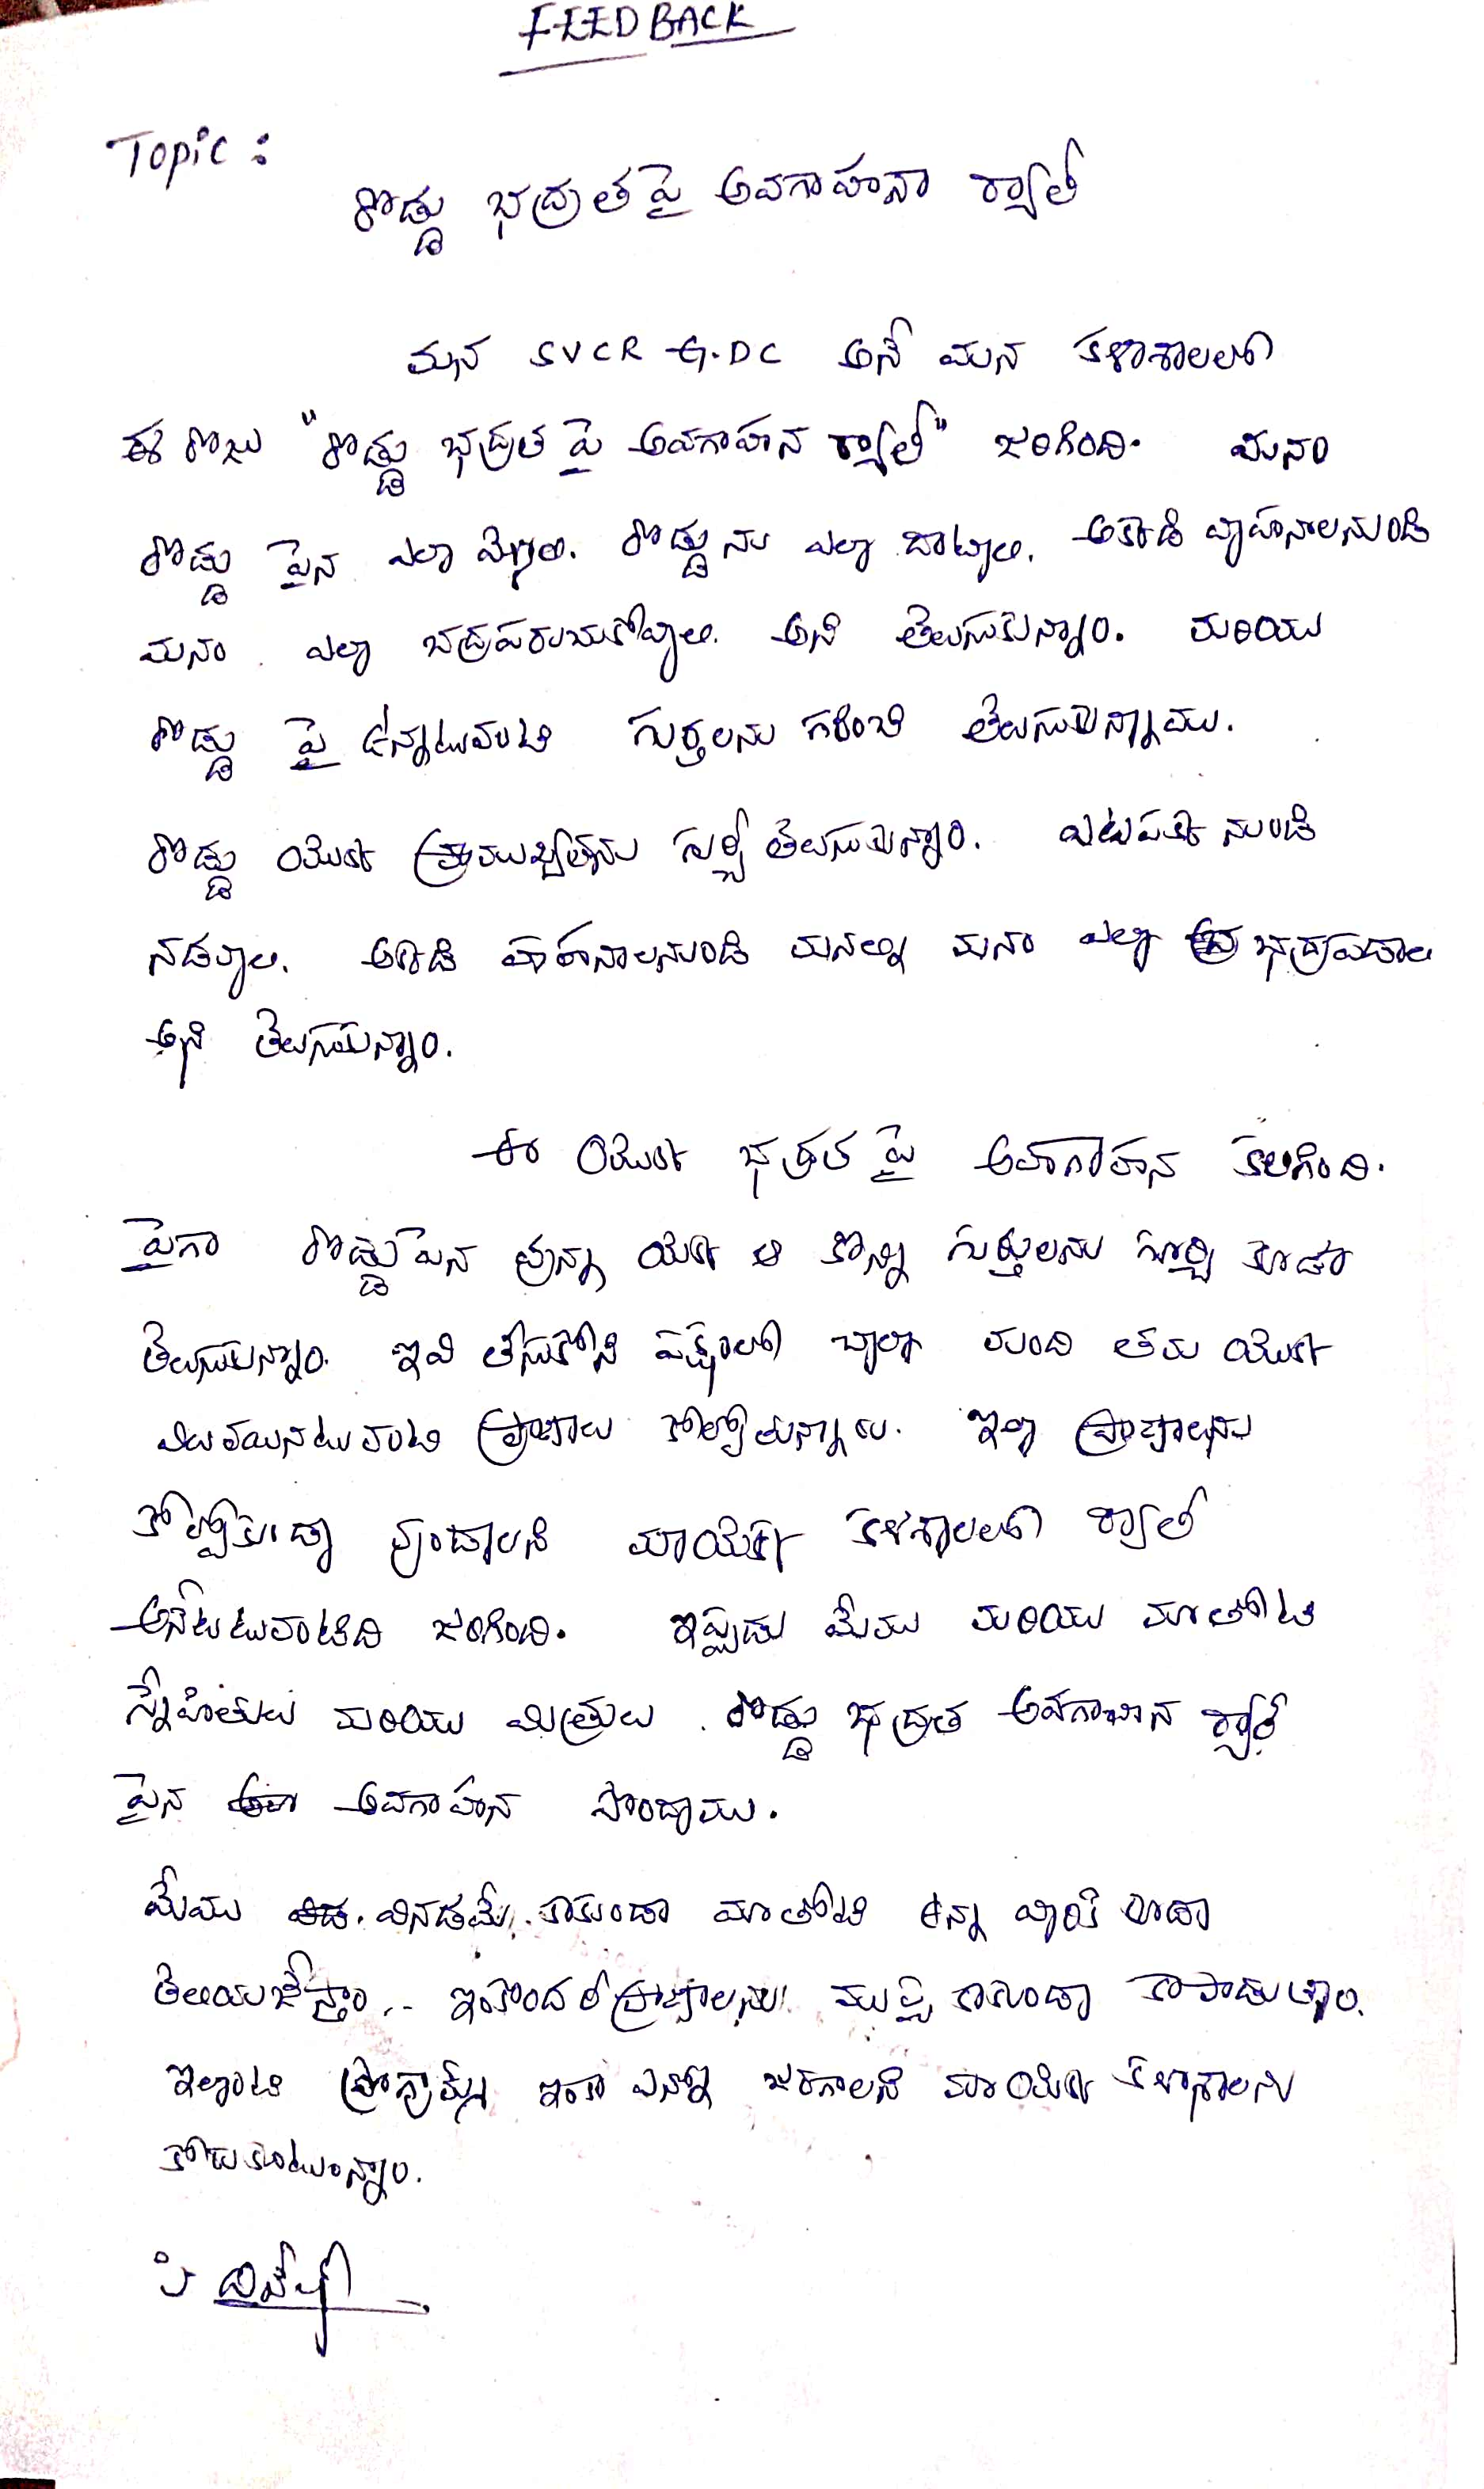 FEEDBACK
Topic :
రొడ్డు భద్రత పై అవగాహనా ర్యాలీ
మన SVCR G.DC అనే మన కళాశాలలో
ఈ రొజు "రొడ్డు భద్రత పై అవగాహన ర్యాలీ" జరిగింది. మనం
రొడ్డు పైన ఎలా వెళ్ళాలి. రొడ్డును ఎలా దాటాలి. అక్కడి వాహనాలనుండి
మనం ఎలా భద్రపరుచుకోవాలి. అని తెలుసుకున్నాం. మరియు
రొడ్డు పై ఉన్నటువంటి గుర్తులను గురించి తెలుసుకున్నాము.
రొడ్డు యొక్క ప్రాముఖ్యతను గుర్చి తెలుసుకున్నాం. ఎటుపక్క నుండి
నడవాలి. అక్కడి వాహనాలనుండి మనల్ని మనం ఎలా భద్రపడాలి
అని తెలుసుకున్నాం.
ఈ యొక్క భద్రత పై అవాగాహన కలిగింది.
పైగా రొడ్డుపైన వున్న యొక్క ఆ కొన్ని గుర్తులను గూర్చి కూడా
తెలుసుకున్నాం. ఇవి తీసుకోని పక్షంలో చాలా మంది తమ యొక్క
విలువయినటువంటి ప్రాణాలు కోల్పోతున్నారు. ఇలా ప్రాణాలను
కోల్పోకుండా వుండాలని మాయొక్క కళశాలలో ర్యాలీ
అనేటటువంటిది జరిగింది. ఇప్పుడు మేము మరియు మాతోటి
స్నేహితులు మరియు మిత్రులు . రొడ్డు భద్రత అవగాహన ర్యాలీ
పైన అవగాహన పొందాము.
మేము వినడమే. కాకుండా మాతోటి ఉన్న వారికి కూడా
తెలియజేస్తాం .. ఇంకొందరి ప్రాణాలను ముప్పు కాకుండా కాపాడుతాం.
ఇలాంటి ప్రోగ్రామ్స్ ఇంకా ఎన్నో జరగాలని మా యొక్క కళాశాలను
కోరుకుంటున్నాం.
పి దినేష్